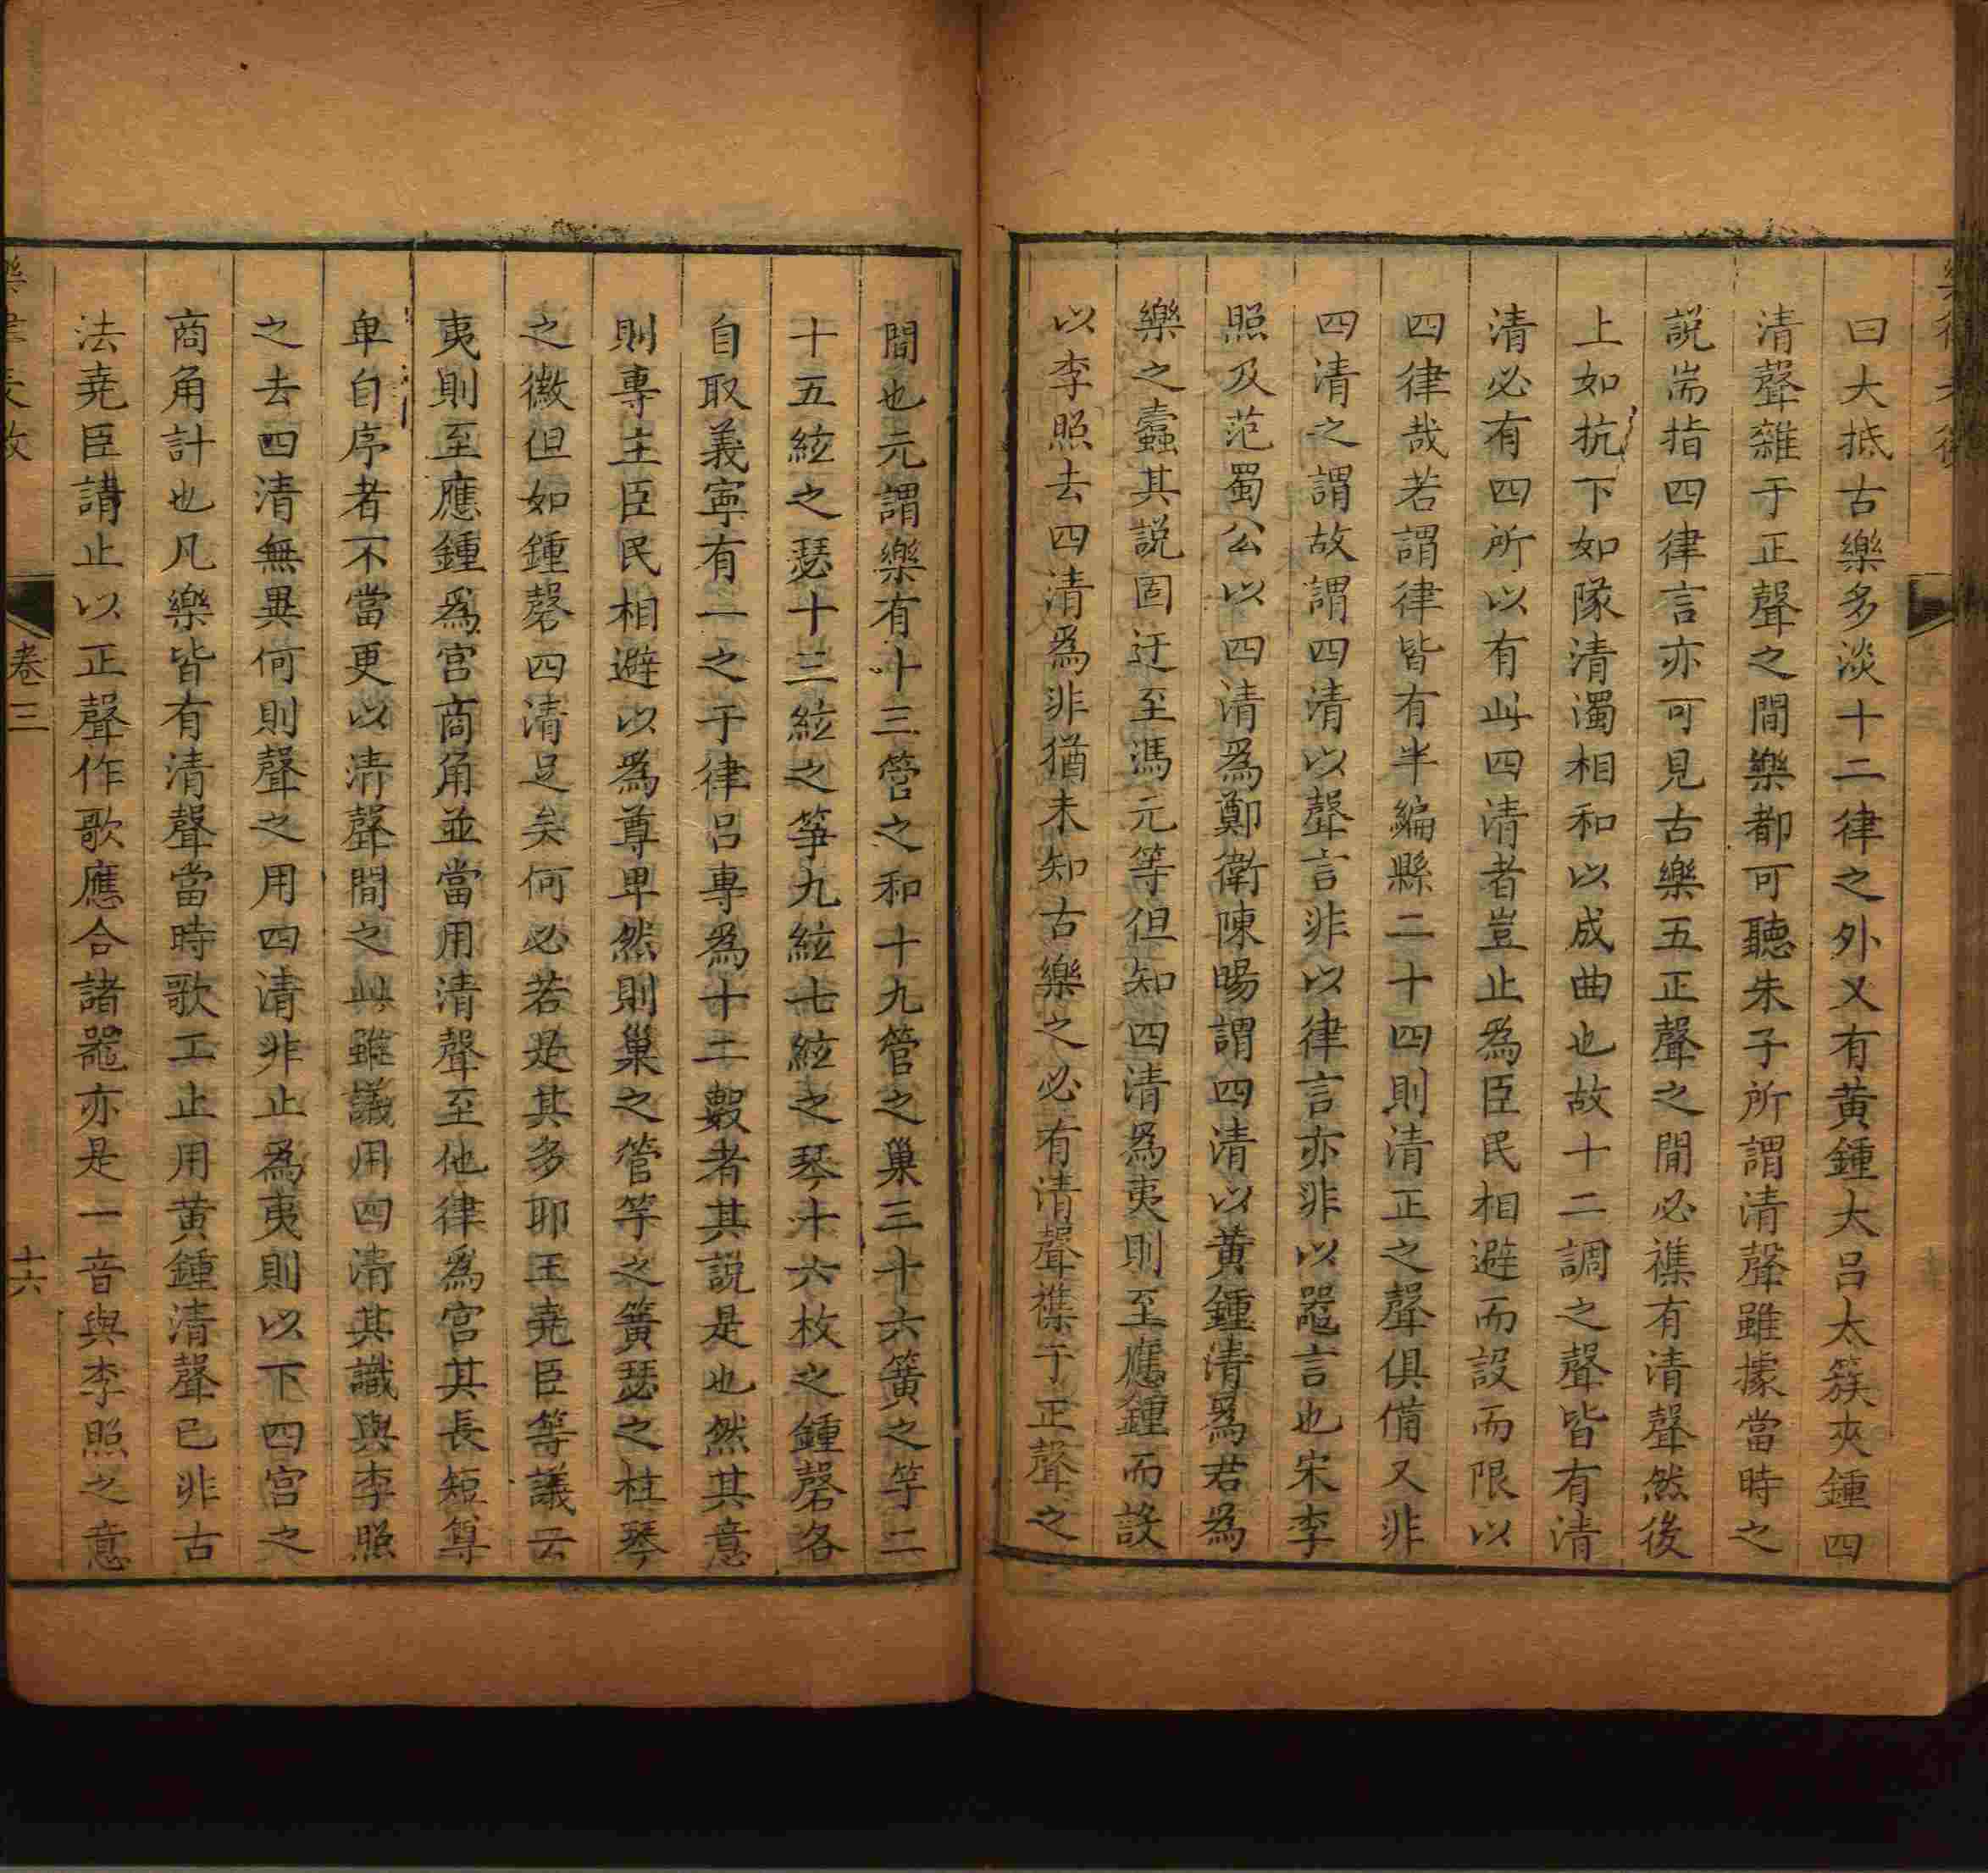 曰大抵古樂多淡十二律之外又有黄鍾大吕太簇夾鍾四
清聲雜于正聲之間樂都可聽朱子所謂清聲雖據當時之
説耑指四律言亦可見古樂五正聲之間必襍有清聲然後
上如抗下如隊清濁相和以成曲也故十二調之聲皆有清
清必有四所以有此四清者豈止為臣民相避而設而限以
四律哉若謂律皆有半編縣二十四則清正之聲俱備又非
四清之謂故謂四清以聲言非以律言亦非以噐言也宋李
照及范蜀公以四清爲鄭衛陳暘謂四清以黄鍾清爲君為
樂之蠹其説固迂至馮元等但知四清為夷則至應鍾而設
以李照去四清為非猶未知古樂之必有清聲襍于正聲之
間也元謂樂有十三管之和十九管之巢三十六簧之竽二
十五絃之瑟十三絃之箏九絃七絃之琴十六枚之鍾磬各
自取義寜有一之于律吕專為十二數者其説是也然其意
則專主臣民相避以為尊卑然則巢之管竽之簧瑟之柱琴
之徽但如鍾磬四清足矣何必若是其多耶王堯臣等議云
夷則至應鍾爲宫商角並當用清聲至他律為宫其長短尊
卑自序者不當更以清聲間之此雖議用四清其識與李照
之去四清無異何則聲之用四清非止為夷則以下四宫之
商角計也凡樂皆有清聲當時歌工止用黄鍾清聲已非古
法堯臣請止以正聲作歌應合諸噐亦是一音與李照之意
卷三
十六